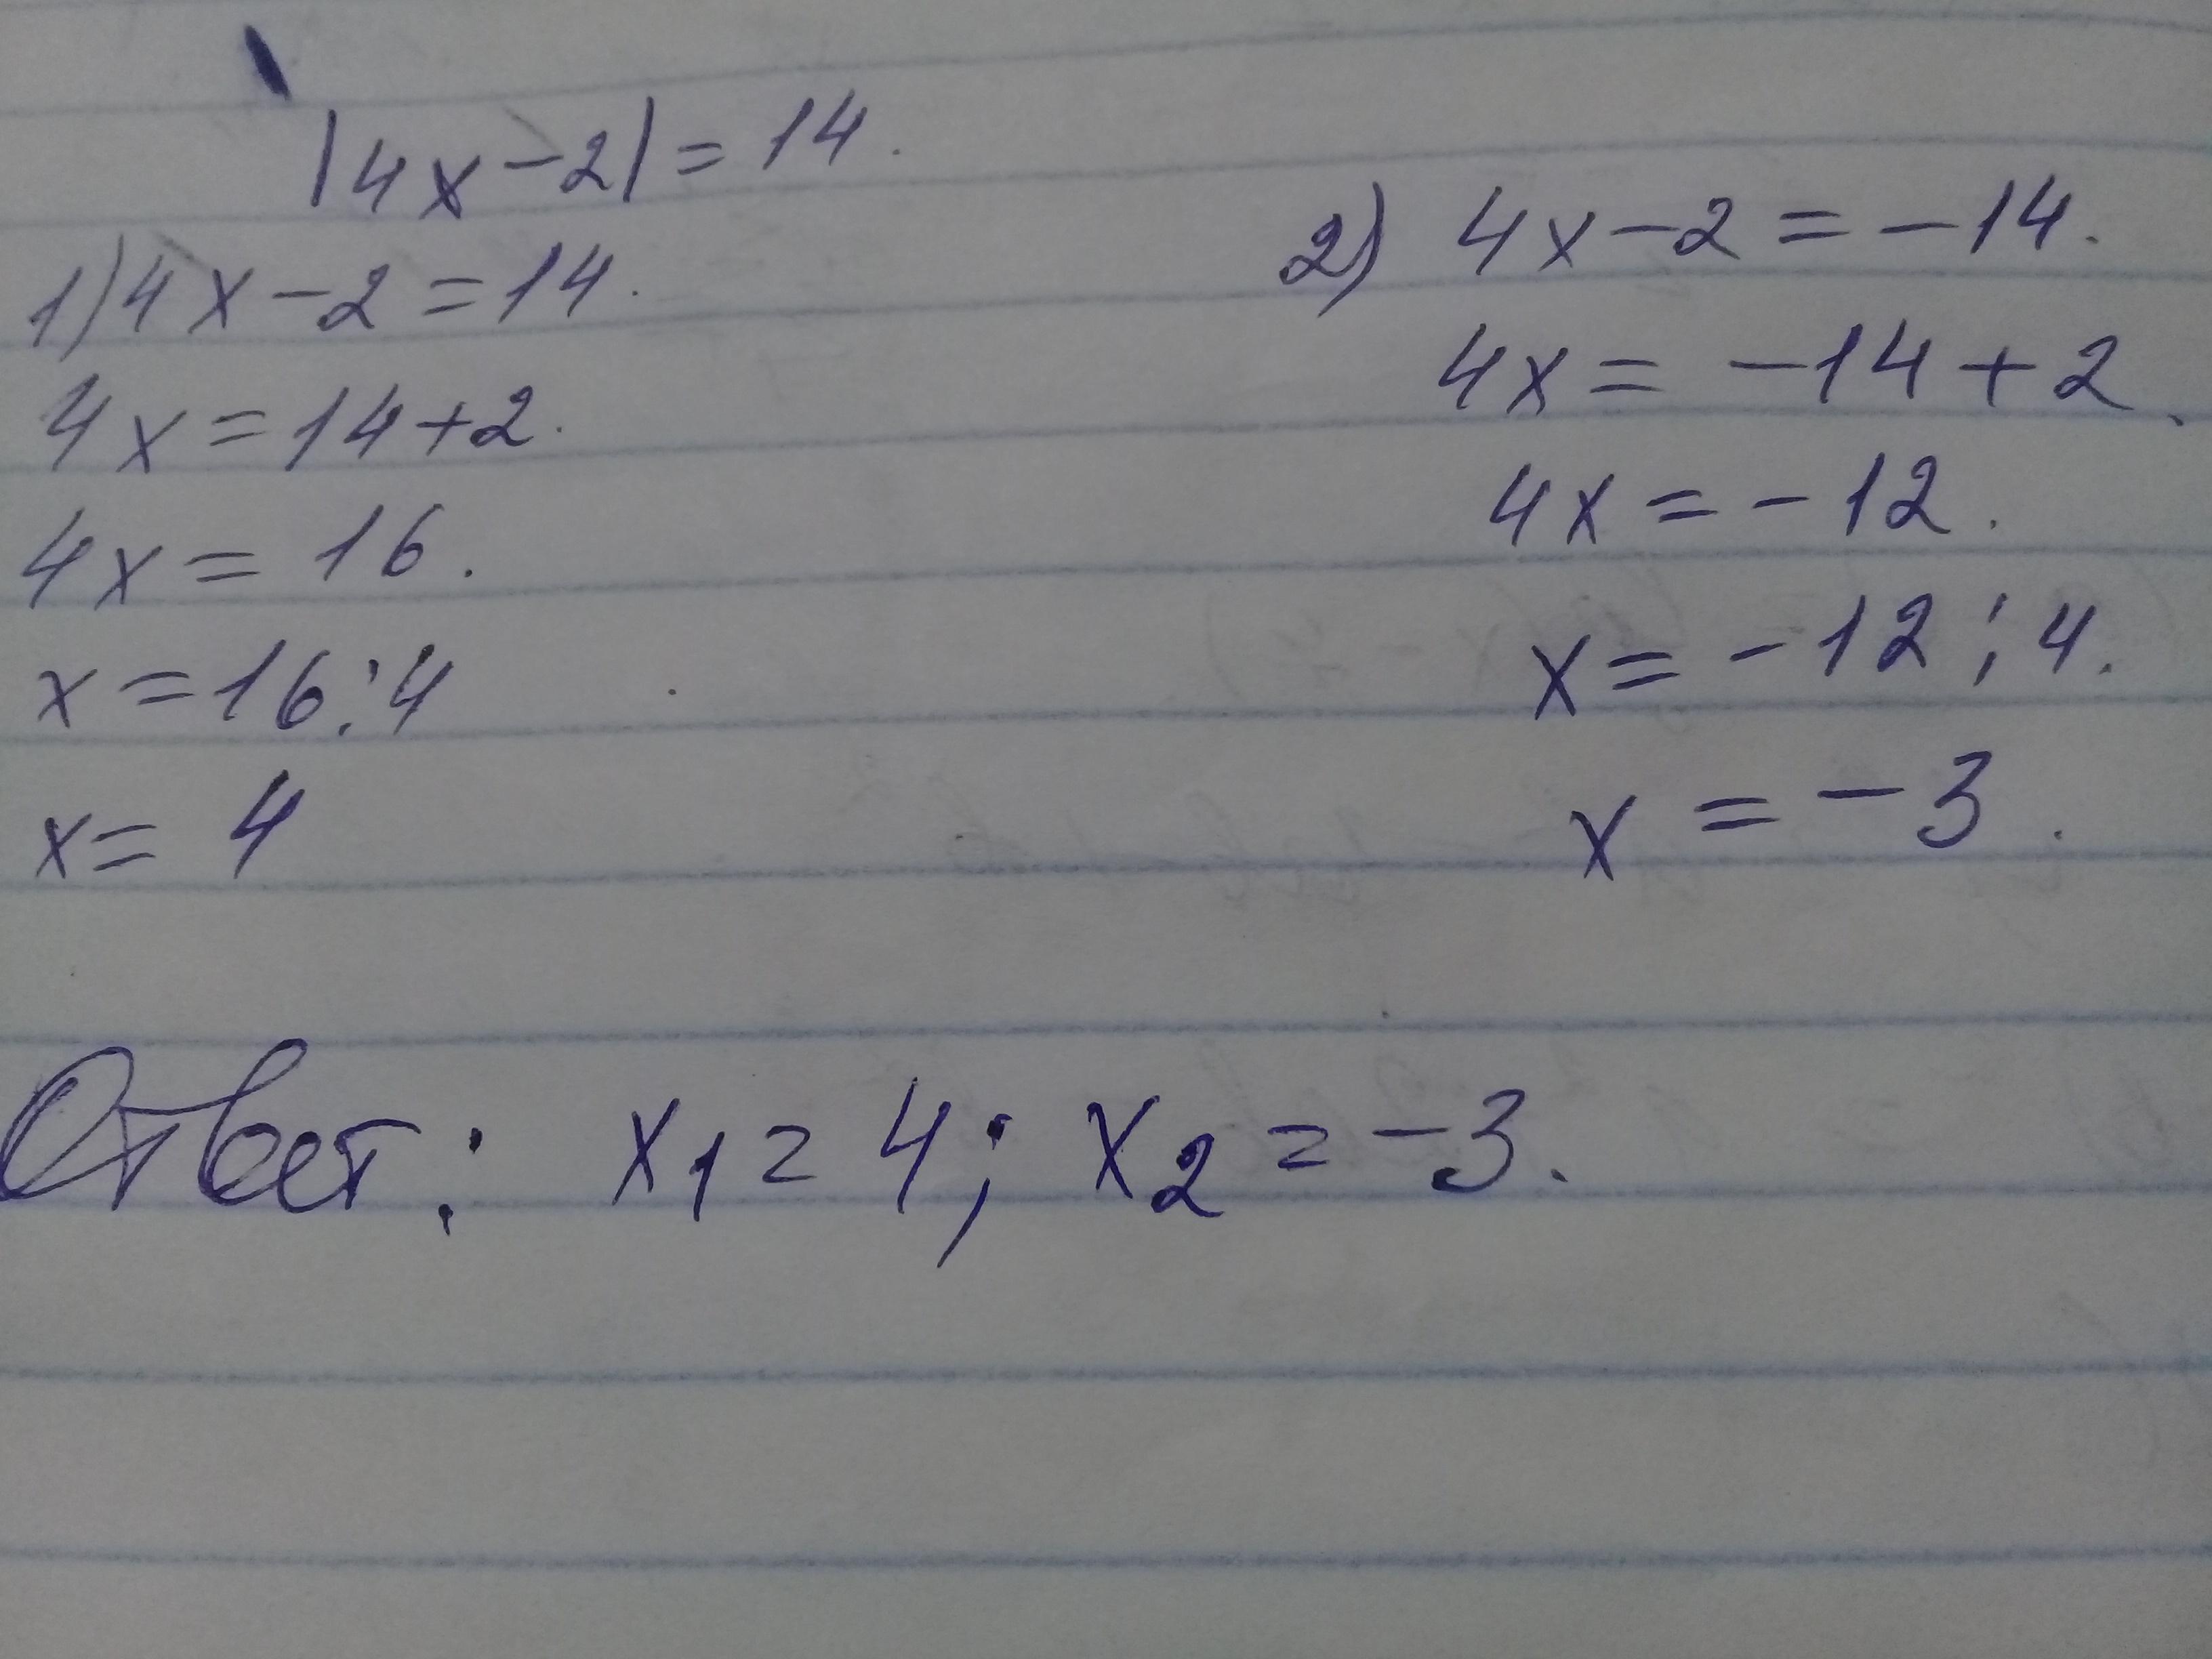 |4x-2|=14.
1) 4x-2=14.
4x=14+2.
4x=16.
x=16:4
x=4
2) 4x-2=-14.
4x=-14+2.
4x=-12.
x=-12:4.
x=-3.
Ответ: x₁=4; x₂=-3.